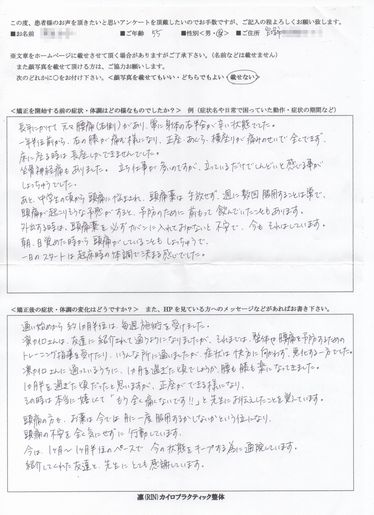 この度、患者様のお声を頂きたいと思いアンケートを頂戴したいのでお手数ですが、ご記入の程よろしくお願い致します。
■お名前 ■ご年齢 55 ■性別＜男・女＞ ■ご住所
※文章をホームページに載せさせて頂く場合がありますがご了承下さい。（名前などは載せません）
また顔写真を載せて頂ける方は、ご協力お願いします。
次のどれかに○をお付け下さい。＜顔写真を載せてもいい・どちらでもよい・載せない＞
＜矯正を開始する前の症状・体調はどの様なものでしたか？ 例（症状名や日常で困っていた動作・症状の期間など）
長年にかけて 元々腰痛(右側)があり、常に身体の右半分が辛い状態でした。
一年半ほど前から、右の膝が痛む様になり、正座、あぐら、横座りが痛みのせいで全くできず、
床に座る時は長座しかできませんでした。
坐骨神経痛もありました。 立ち仕事が多いのですが、立っているだけでしんどいと感じる事が
しょっちゅうでした。
あと中学生の頃から頭痛に悩まされ、頭痛薬は手放せず、週に数回服用することは常で、
頭痛が起こりそうな不安がすると、予防のために前もって飲んでいたこともあります。
外出する時は、頭痛薬を必ずカバンに入れておかないと不安で、今もそれはしています。
朝、目覚めた時から頭痛がしていることもしょっちゅうで、
一日のスタートは起床時の体調で決まる感じでした。
＜矯正後の症状・体調の変化はどうですか？ また、HPを見ている方へのメッセージなどがあればお書き下さい。
通い始めから約1か月半ほどは、毎週施術を受けました。
凛カイロさんは、友達に紹介されて通うようになりましたが、それまでは、整体や腰痛を予防するための
トレーニング指導を受けたり、いろんな所に通いましたが症状は快方に向かわず、悪化する一方でした。
凛カイロさんに通いているうちに、1か月を過ぎた頃でしょうか、腰も膝も楽になってきました。
1か月半を過ぎた頃だったと思いますが、正座ができる様になり、
その時は本当に嬉しくて「もう全く痛くないです!!」と先生にお伝えしたことを覚えています。
頭痛の方も、お薬は今では月に一度服用するかしないかという位になり、
頭痛の不安を全く気にせずに行動しています。
今は、1ヶ月～1ヶ月半位のペースで今の状態をキープする為に通院しています。
紹介してくれた友達と、先生にとても感謝しています。
凛(RIN)カイロプラクティック整体